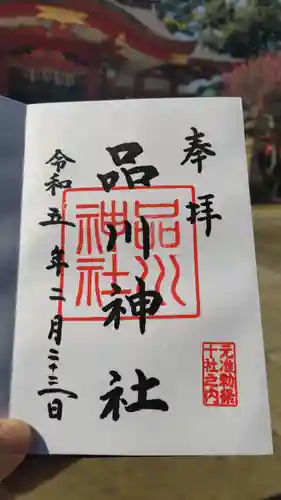 奉拝
品川神社
令和五年二月二十三日
品川神社
元准勅祭
十社之内